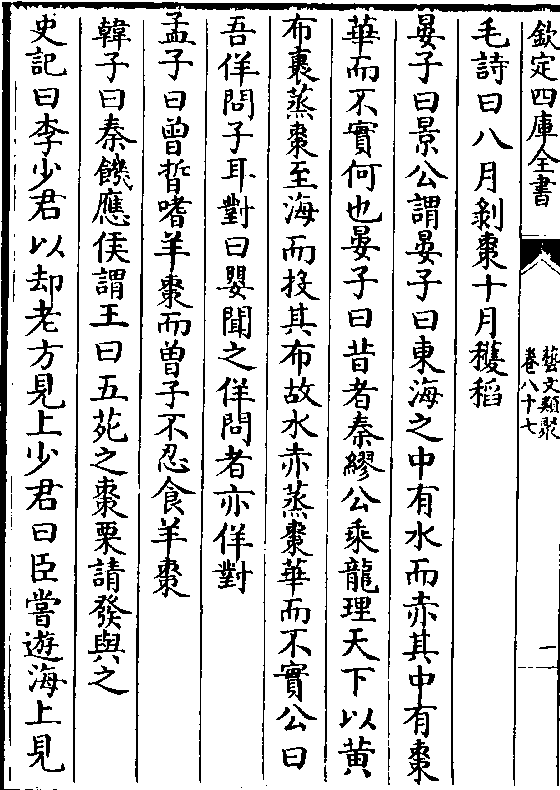 欽定四庫全書
藝文類聚
卷八十七
一
毛詩曰八月剝棗十月穫稻
晏子曰景公謂晏子曰東海之中有水而赤其中有棗
華而不實何也晏子曰昔者秦繆公乘龍理天下以黃
布裹蒸棗至海而投其布故水赤蒸棗華而不實公曰
吾佯問子耳對曰嬰聞之佯問者亦佯對
孟子曰曾晳嗜羊棗而曾子不忍食羊棗
韓子曰秦饑應侯謂王曰五苑之棗栗請發與之
史記曰李少君以却老方見上少君曰臣嘗遊海上見